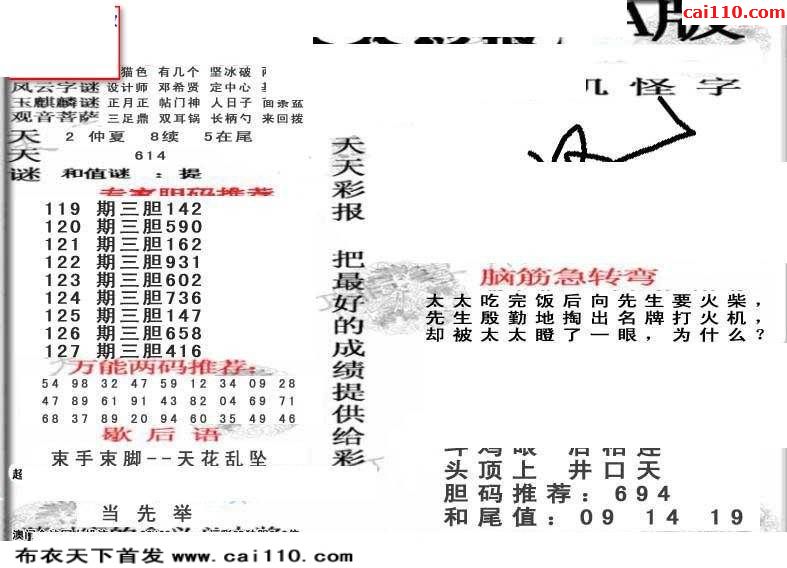 cai110.com
猫色 有几个 坚冰破
风云字谜 设计师 邓希贤 定中心
玉麒麟谜 正月正 帖门神 人日子 面条盆
观音菩萨 三足鼎 双耳锅 长柄勺 来回拨
天 2 仲夏 8续 5在尾
天 614
谜 和值谜 : 提
专家胆码推荐
119 期三胆142
120 期三胆590
121 期三胆162
122 期三胆931
123 期三胆602
124 期三胆736
125 期三胆147
126 期三胆658
127 期三胆416
万能两码推荐:
54 98 32 47 59 12 34 09 28
47 89 61 91 43 82 04 69 71
68 37 89 20 94 60 35 49 46
歇后语
束手束脚--天花乱坠
超
当先举
天天彩报 把最好的成绩提供给彩
版
机怪字
脑筋急转弯
太太吃完饭后向先生要火柴，
先生殷勤地掏出名牌打火机，
却被太太瞪了一眼，为什么？
斗鸡眼 后相连
头顶上 井口天
胆码推荐：694
和尾值：09 14 19
布衣天下首发 www.cai110.com